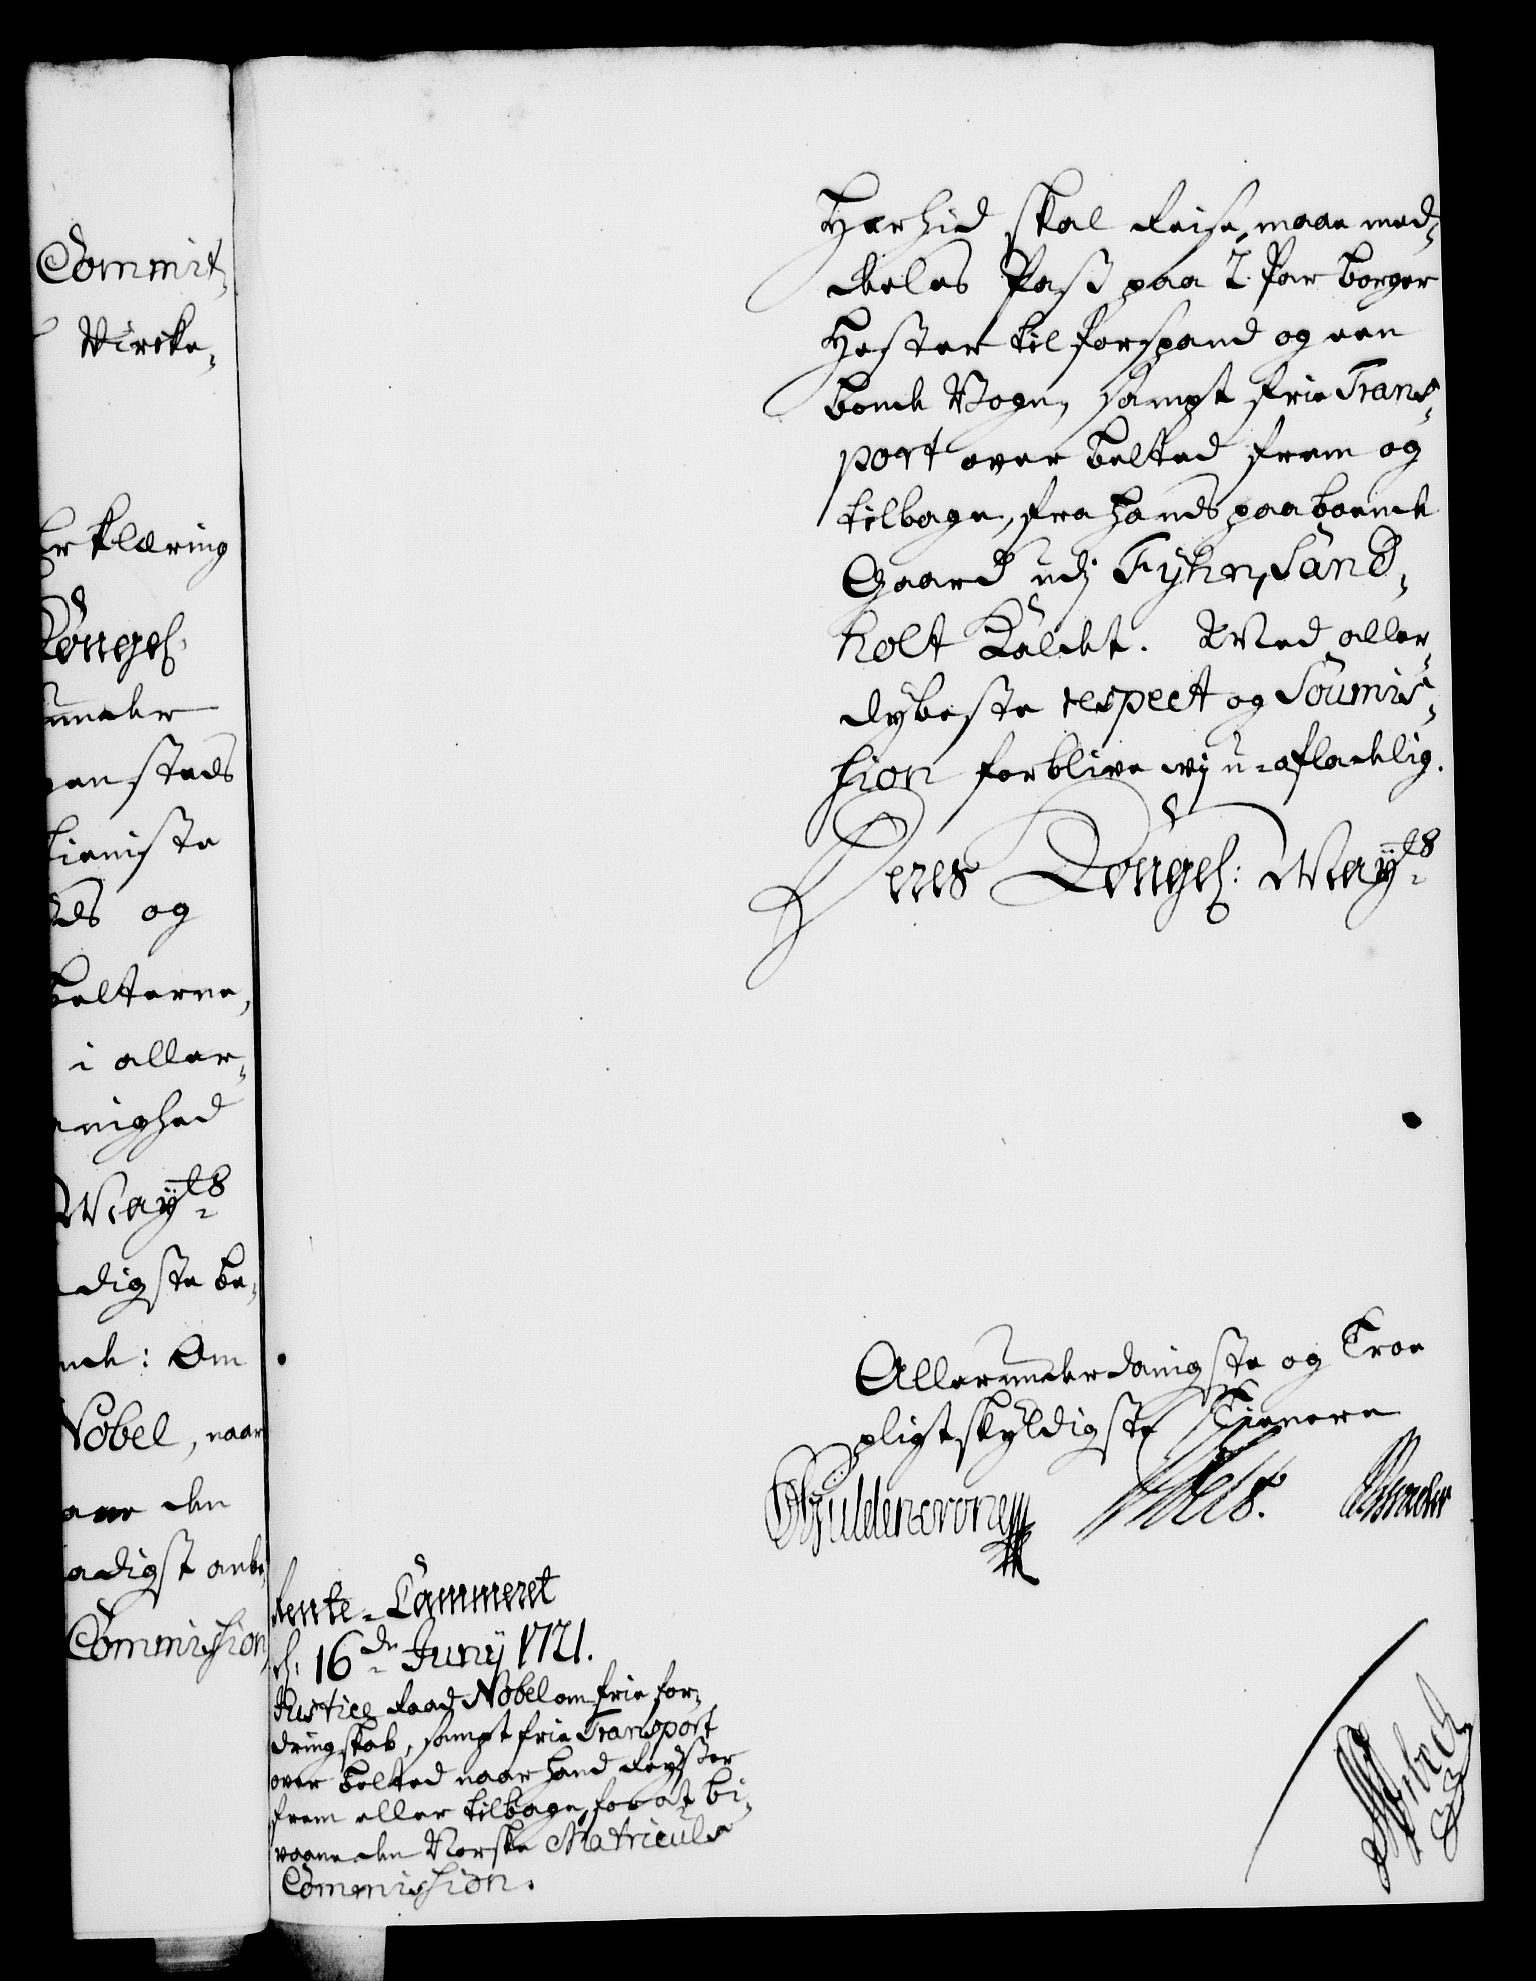 Commit¬
Wircke¬
Erklæring
Kongel:
under
gen steds
tieniste
og
Belterne,
i aller¬
nighed
May:ts
digste be¬
nde: Om
Nobel, naar
den
adigst anbe¬
Commission
Her hid skal reise, maae med¬
deeles Pass paa 2 Par borger
Hester til forspand og een
bonde Vogn, sampt frie Trans¬
port over belted frem og
tilbage, fra hands paaboende
Gaard udj Fyhn, Sand¬
holt kaldet. Med aller¬
dybeste respect og Soumis¬
sion forblive wj u-afladelig.
Deres Kongel: May:ts
Allerunderdanigste og Troe
pligtskyldigste Tienere
Güldencrone
Rente-Cammeret
d. 16de Junij 1721.
Justice Raad Nobel om frie for¬
dringskab, sampt frie Transport
over belted naar hand reyser
frem eller tilbage, for at bi¬
vaane den Norske Matriculs
Commission.